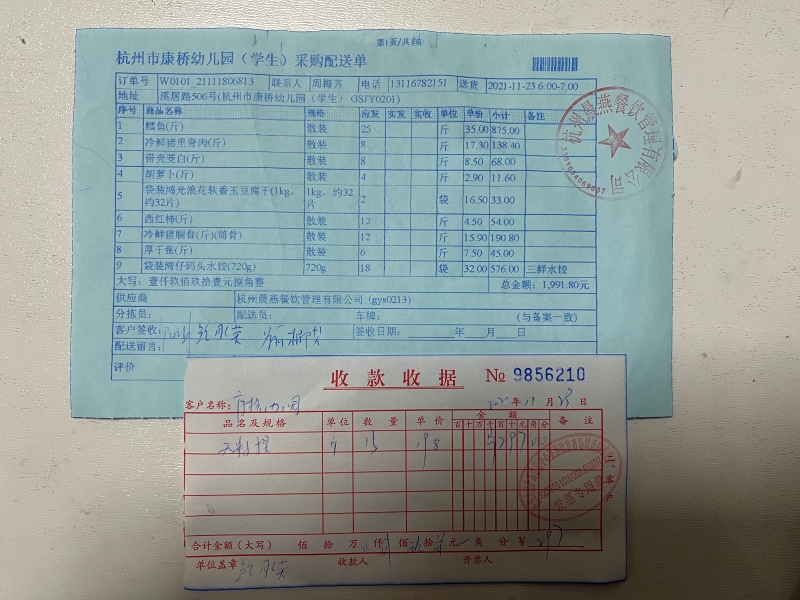 第1页/共1页
杭州市康桥幼儿园（学生）采购配送单
订单号 W0101_21111806813 联系人 周梅芳 电话 13116782151 送货 2021-11-23 6:00-7:00
地址 溪居路506号(杭州市康桥幼儿园（学生） GSJY0201)
序号 商品名称 规格 应发 实发 实收 单位 单价 小计 备注
1 鳕鱼(斤) 散装 25 斤 35.00 875.00
2 冷鲜猪里脊肉(斤) 散装 8 斤 17.30 138.40
3 带壳茭白(斤) 散装 8 斤 8.50 68.00
4 胡萝卜(斤) 散装 4 斤 2.90 11.60
5 袋装鸿光浪花软香玉豆腐干(1kg，约32片) 1kg，约32片 2 袋 16.50 33.00
6 西红柿(斤) 散装 12 斤 4.50 54.00
7 冷鲜猪胴骨(斤)(筒骨) 散装 12 斤 15.90 190.80
8 厚千张(斤) 散装 6 斤 7.50 45.00
9 袋装湾仔码头水饺(720g) 720g 18 袋 32.00 576.00 三鲜水饺
大写：壹仟玖佰玖拾壹元捌角整 总金额：1,991.80元
供应商 杭州晨燕餐饮管理有限公司（gys0213）
分拣员： 配送员： 车牌： (与备案一致)
客户签收： 签收日期： 年 月 日
配送留言：
评价
杭州晨燕餐饮管理有限公司
收款收据 № 9856210
客户名称： 2021 年 11 月 23 日
品名及规格 单位 数量 单价 金额 备注
百 十 万 千 百 十 元 角 分
15 198 297
发票专用章
合计金额（大写） 佰 拾 万 仟 佰 拾 元 角 分 ￥ 297
单位盖章 收款人 开票人